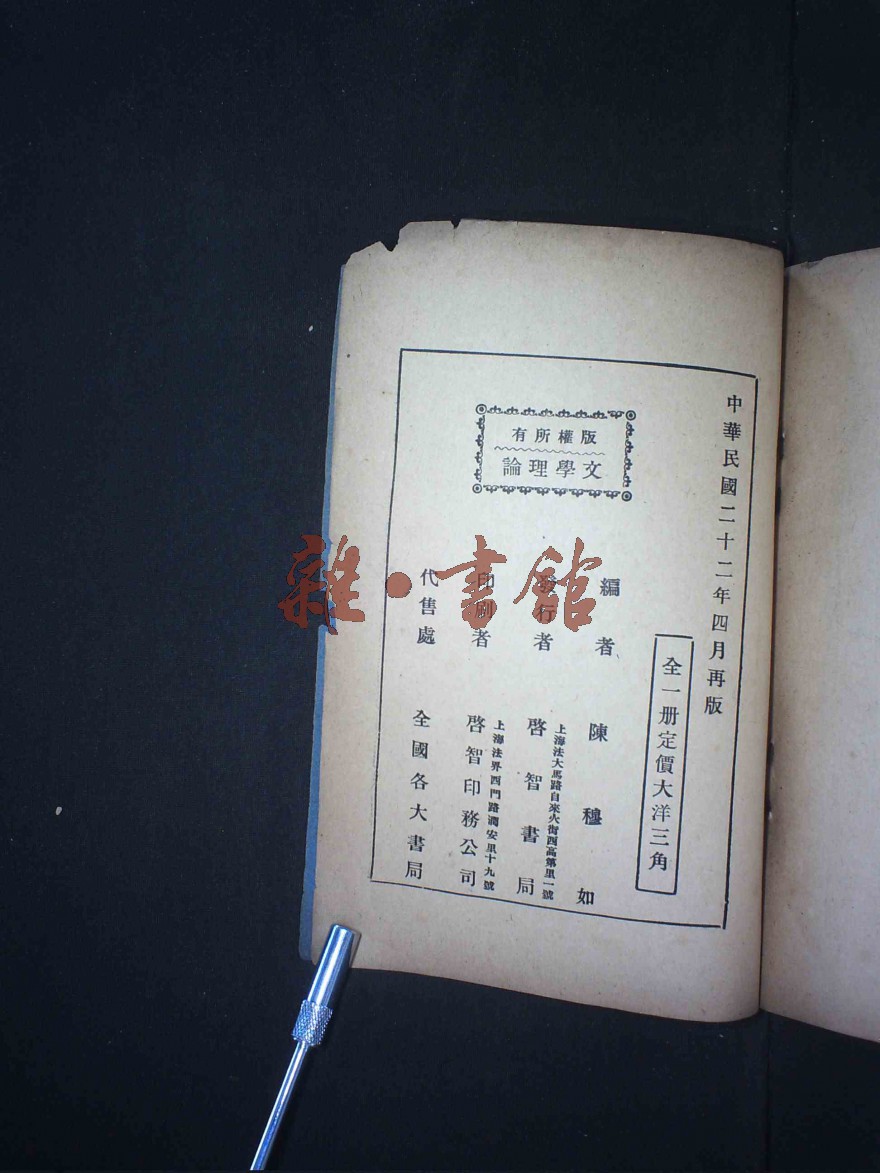 中華民國二十二年四月再版
全一册定價大洋三角
版權所有
文學理論
編者 陳穆如
發行者 啓智書局
上海法大馬路自來火街西高第里一號
印刷者 啓智印務公司
上海法界西門路潤安里十九號
代售處 全國各大書局
雜·書館